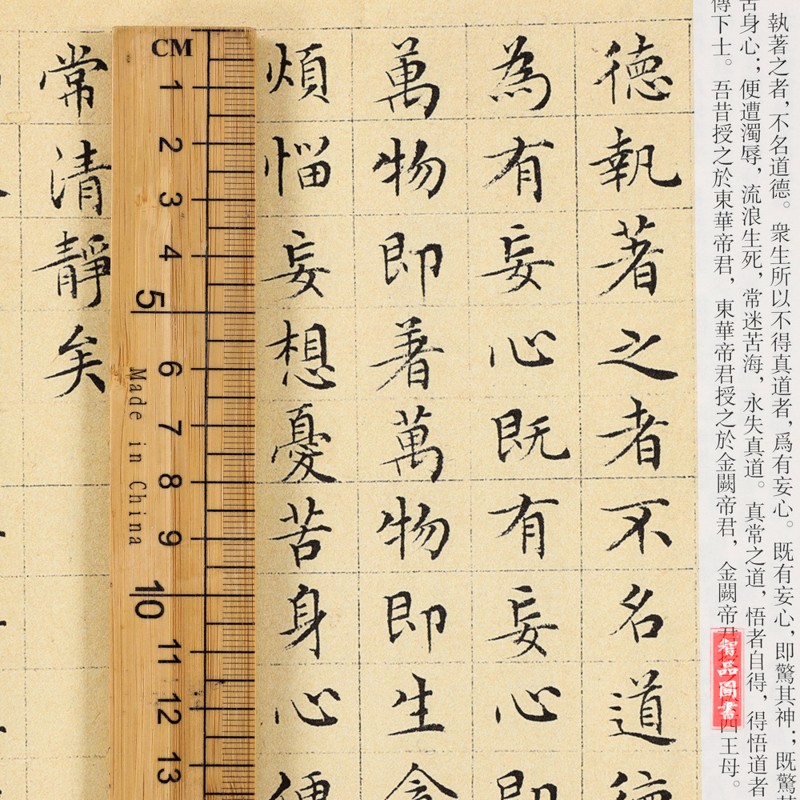 執著之者，不名道德。衆生所以不得真道者，爲有妄心。既有妄心，即驚其神；既驚其
苦身心；便遭濁辱，流浪生死，常迷苦海，永失真道。真常之道，悟者自得，得悟道者
傳下士。吾昔授之於東華帝君，東華帝君授之於金闕帝君，金闕帝君西王母。
智品圖書
德執著之者不名道德
為有妄心既有妄心即
萬物即著萬物即生貪
煩惱妄想憂苦身心便
CM
1
2
3
4
5
6
7
8
9
10
11
12
13
Made in China
常清靜矣